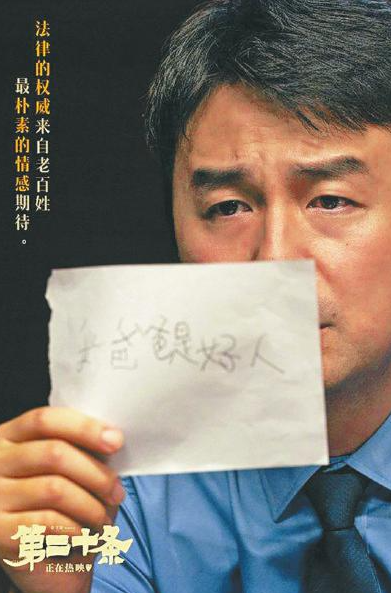 法律的权威来自老百姓
最朴素的情感期待。
爸爸是好人
第二十条
正在热映